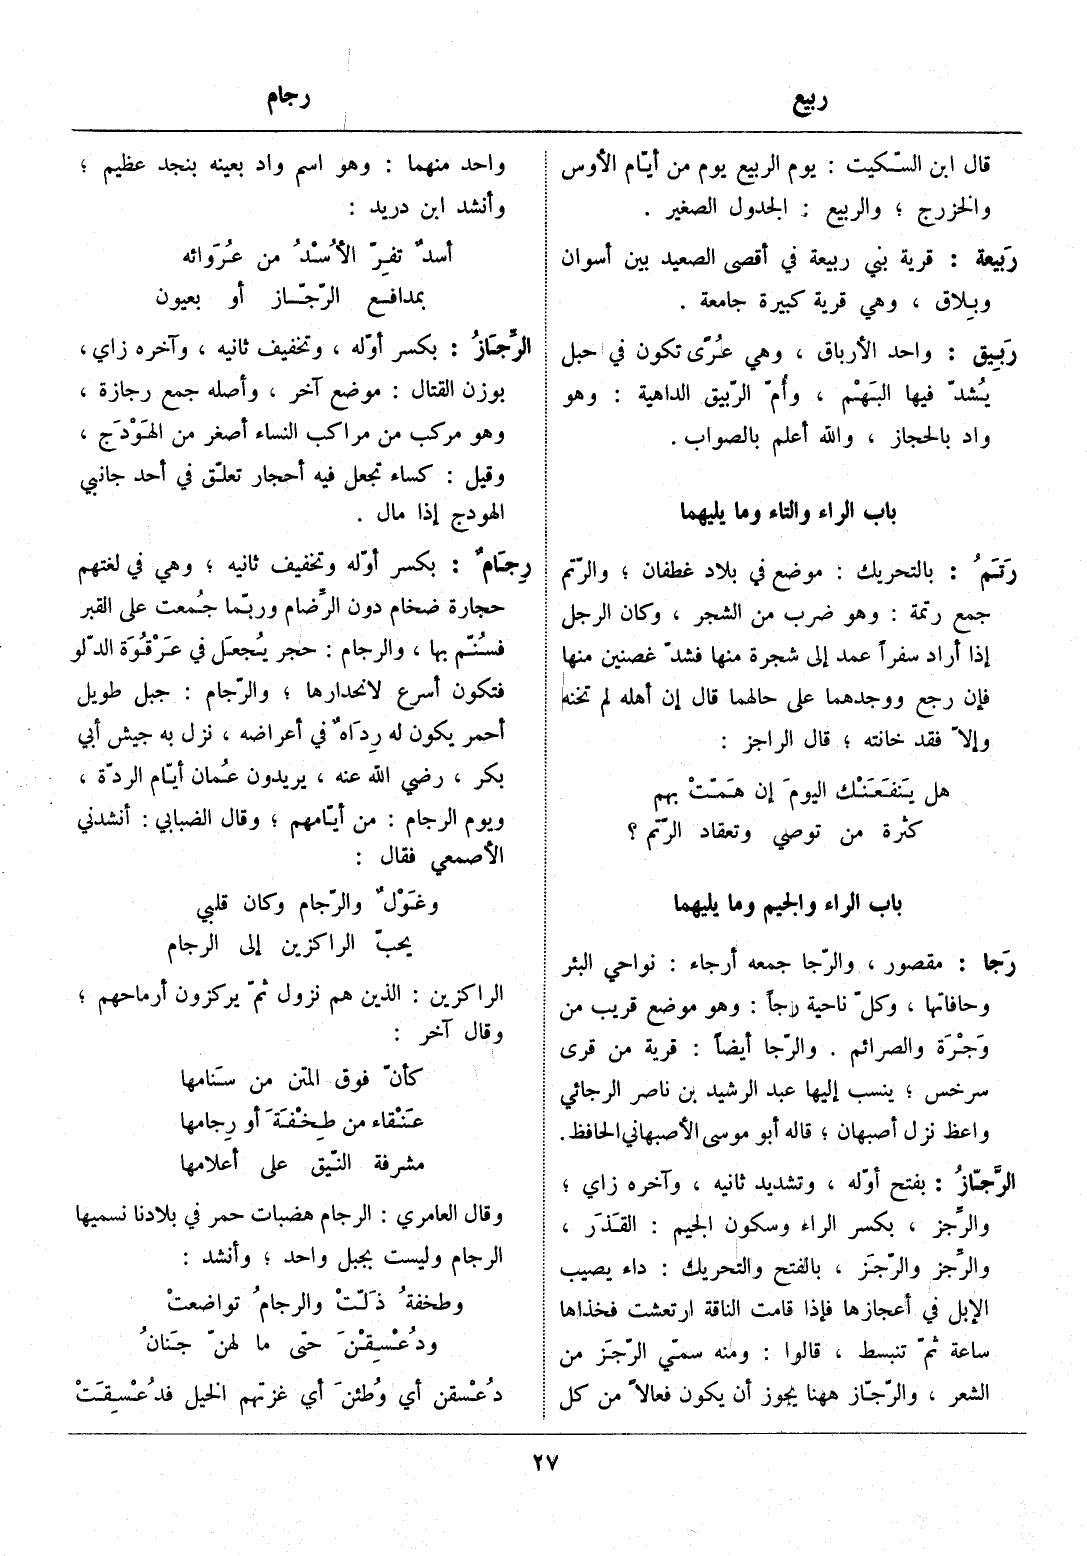 ربيع
رجام
قال ابن السّكيت : يوم الربيع يوم من أيّام الأوس
والخزرج ؛ والربيع : الجدول الصغير .
رَبيعة : قرية بني ربيعة في أقصى الصعيد بين أسوان
وبِلاق ، وهي قرية كبيرة جامعة .
رَبِيق : واحد الأرباق ، وهي عُرًى تكون في حبل
يُشدّ فيها البَهْم ، وأُمّ الرّبيق الداهية : وهو
واد بالحجاز ، والله أعلم بالصواب .
باب الراء والتاء وما يليهما
رَتَمُ : بالتحريك : موضع في بلاد غطفان ؛ والرّتم
جمع رتمة : وهو ضرب من الشجر ، وكان الرجل
إذا أراد سفراً عمد إلى شجرة منها فشدّ غصنين منها
فإن رجع ووجدهما على حالهما قال إن أهله لم تخنه
وإلاّ فقد خانته ؛ قال الراجز :
هل يَنفَعَنْك اليومَ إن هَمّتْ بهم
كثرة من توصي وتعقاد الرّتم ؟
باب الراء والجيم وما يليهما
رَجا : مقصور ، والرّجا جمعه أرجاء : نواحي البئر
وحافاتها ، وكلّ ناحية رجاً : وهو موضع قريب من
وَجْرَة والصرائم . والرّجا أيضاً : قرية من قرى
سرخس ؛ ينسب إليها عبد الرشيد بن ناصر الرجائي
واعظ نزل أصبهان ؛ قاله أبو موسى الأصبهاني الحافظ .
الرَّجّازُ : بفتح أوّله ، وتشديد ثانيه ، وآخره زاي ؛
والرِّجز ، بكسر الراء وسكون الجيم : القَذَر ،
والرِّجز والرّجَز ، بالفتح والتحريك : داء يصيب
الإبل في أعجازها فإذا قامت الناقة ارتعشت فخذاها
ساعة ثمّ تنبسط ، قالوا : ومنه سمّي الرّجَز من
الشعر ، والرّجّاز ههنا يجوز أن يكون فعالاً من كل
واحد منهما : وهو اسم واد بعينه بنجد عظيم ؛
وأنشد ابن دريد :
أسدٌ تفِرّ الأُسْدُ من عُرَوائه
بمدافع الرّجّاز أو بعيون
الرِّجَازُ : بكسر أوّله ، وتخفيف ثانيه ، وآخره زاي ،
بوزن القتال : موضع آخر ، وأصله جمع رجازة ،
وهو مركب من مراكب النساء أصغر من الهَوْدَج ،
وقيل : كساء تجعل فيه أحجار تعلّق في أحد جانبي
الهودج إذا مال .
رِجَامٌ : بكسر أوّله وتخفيف ثانيه ؛ وهي في لغتهم
حجارة ضخام دون الرِّضام وربّما جُمعت على القبر
فسُنّم بها ، والرجام : حجر يُجعَل في عَرْقُوَة الدّلو
فتكون أسرع لانحدارها ؛ والرّجام : جبل طويل
أحمر يكون له رِدَاهٌ في أعراضه ، نزل به جيش أبي
بكر ، رضي الله عنه ، يريدون عُمان أيّام الردّة ،
ويوم الرجام : من أيّامهم ؛ وقال الضبابي : أنشدني
الأصمعي فقال :
وغَوْلٌ والرّجام وكان قلبي
يحبّ الراكزين إلى الرجام
الراكزين : الذين هم نزول ثمّ يركزون أرماحهم ؛
وقال آخر :
كأنّ فوق المتن من سنَامها
عَنْقاء من طِخْفَةَ أو رِجامها
مشرفة النّيق على أعلامها
وقال العامري : الرجام هضبات حمر في بلادنا نسميها
الرجام وليست بجبل واحد ؛ وأنشد :
وطخفةُ ذَلّتْ والرجامُ تواضعتْ
ودُعْسِقْنَ حتى ما لهنّ جَنانُ
دُعْسقن أي وُطئنَ أي غزتهم الخيل فدُعْسِقَتْ
٢٧